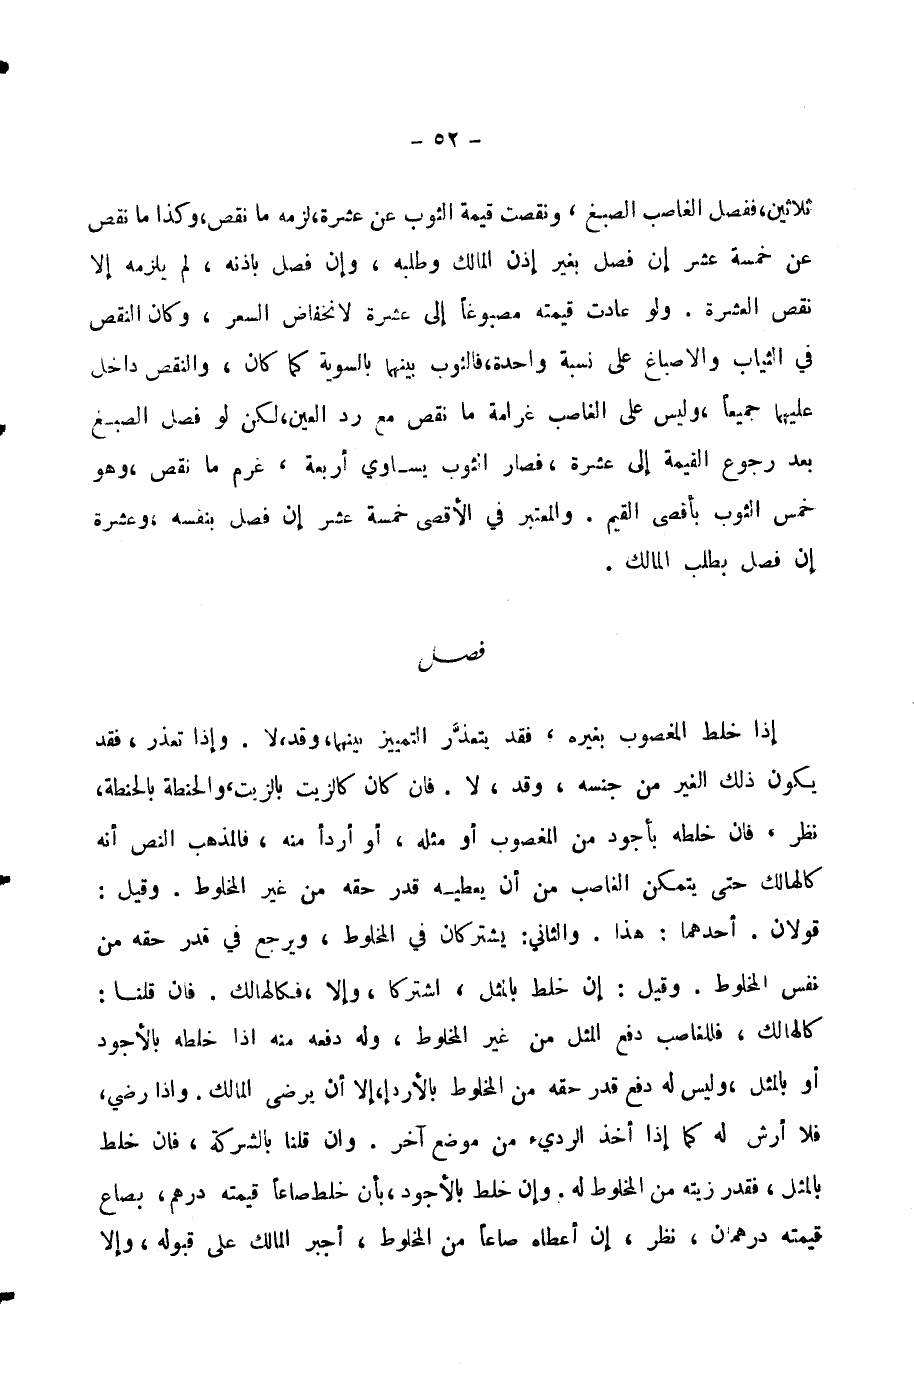 - ٥٢ -
ثلاثين، ففصل الغاصب الصبغ ، ونقصت قيمة الثوب عن عشرة، لزمه ما نقص، وكذا ما نقص
عن خمسة عشر إن فصل بغير إذن المالك وطلبه ، وإن فصل باذنه ، لم يلزمه إلا
نقص العشرة . ولو عادت قيمته مصبوغاً إلى عشرة لانخفاض السعر ، وكان النقص
في الثياب والاصباغ على نسبة واحدة، فالثوب بينهما بالسوية كما كان ، والنقص داخل
عليهما جميعاً ، وليس على الغاصب غرامة ما نقص مع رد العين، لكن لو فصل الصبغ
بعد رجوع القيمة إلى عشرة ، فصار الثوب يساوي أربعة ، غرم ما نقص ، وهو
خمس الثوب بأقصى القيم . والمعتبر في الأقصى خمسة عشر إن فصل بنفسه ، وعشرة
إن فصل بطلب المالك .
فصل
إذا خلط المغصوب بغيره ، فقد يتعذَّر التمييز بينهما، وقد، لا . وإذا تعذر ، فقد
يكون ذلك الغير من جنسه ، وقد ، لا . فان كان كالزيت بالزيت، والحنطة بالحنطة،
نظر ، فان خلطه بأجود من المغصوب أو مثله ، أو أردأ منه ، فالمذهب النص أنه
كالهالك حتى يتمكن الغاصب من أن يعطيه قدر حقه من غير المخلوط . وقيل :
قولان . أحدهما : هذا . والثاني: يشتركان في المخلوط ، ويرجع في قدر حقه من
نفس المخلوط . وقيل : إن خلط بالمثل ، اشتركا ، وإلا ، فكالهالك . فان قلنا :
كالهالك ، فللغاصب دفع المثل من غير المخلوط ، وله دفعه منه اذا خلطه بالأجود
أو بالمثل ، وليس له دفع قدر حقه من المخلوط بالأردإ، إلا أن يرضى المالك . واذا رضي،
فلا أرش له كما إذا أخذ الرديء من موضع آخر . وان قلنا بالشركة ، فان خلط
بالمثل ، فقدر زيته من المخلوط له . وإن خلط بالأجود ، بأن خلط صاعاً قيمته درهم، بصاع
قيمته درهمان ، نظر ، إن أعطاه صاعاً من المخلوط ، أجبر المالك على قبوله ، وإلا